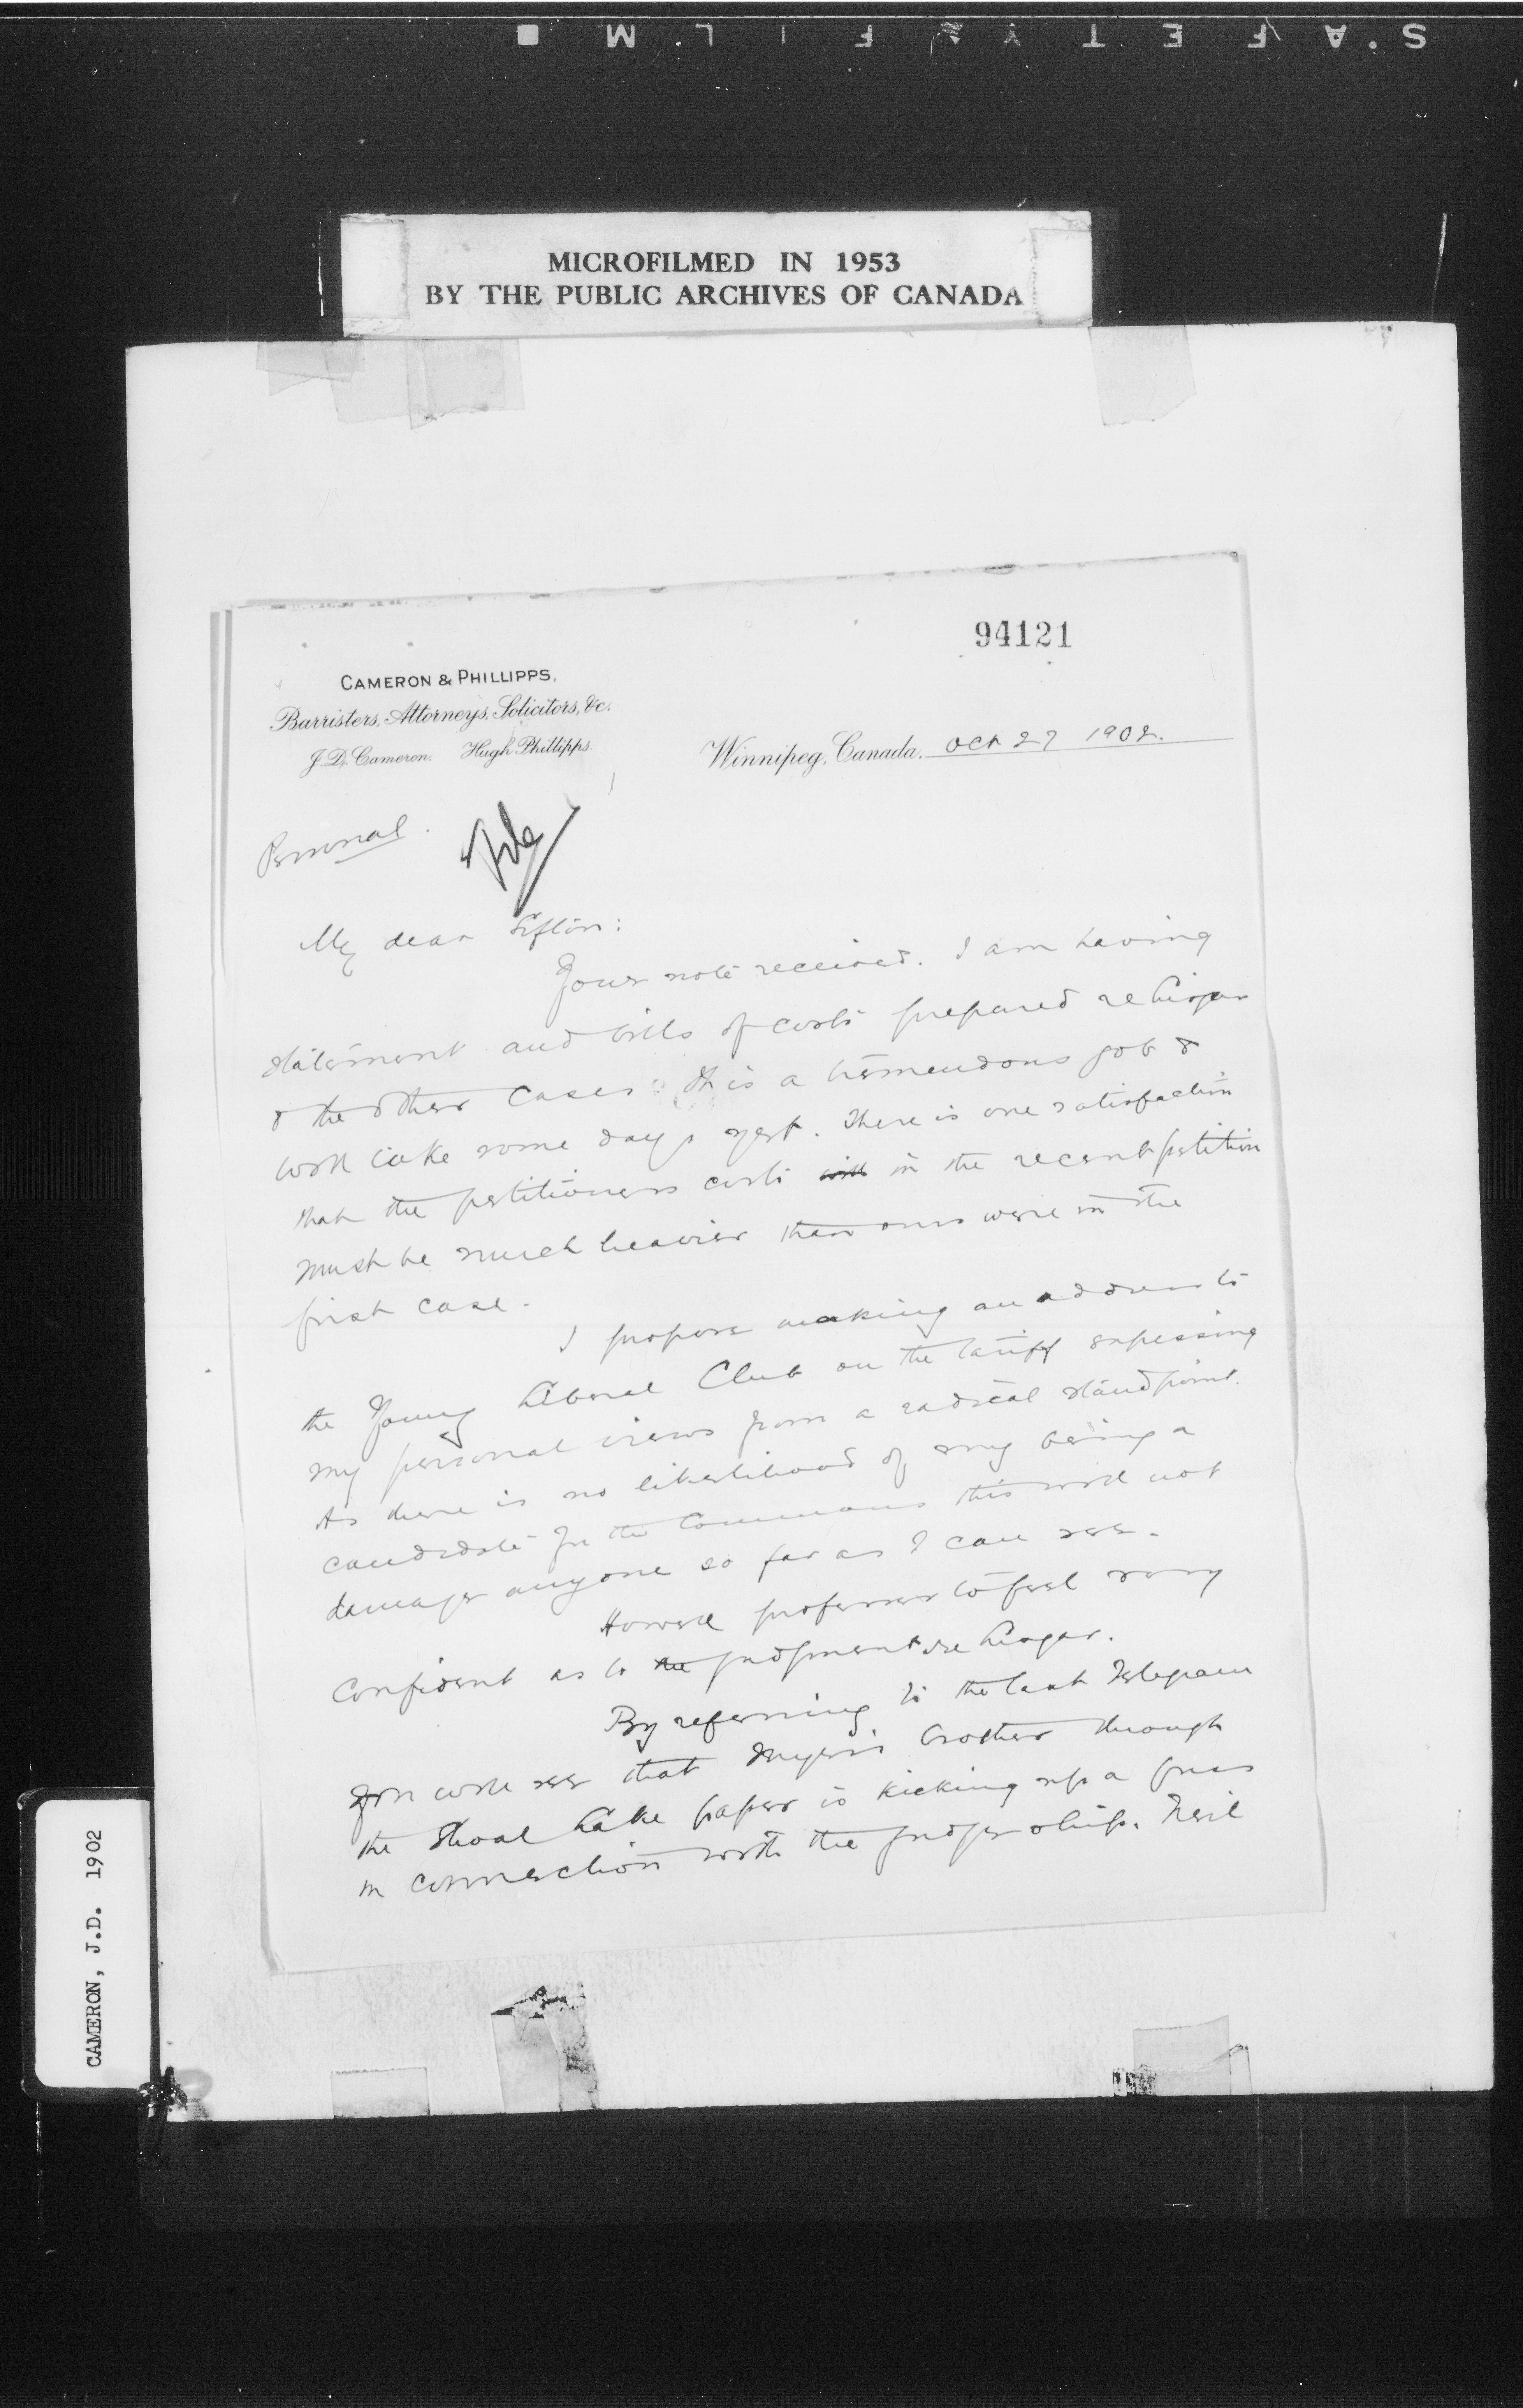 SAFETY FILM
MICROFILMED IN 1953
BY THE PUBLIC ARCHIVES OF CANADA
94121
CAMERON & PHILLIPPS,
Barristers, Attorneys, Solicitors, &c.
J. D. Cameron. Hugh Phillipps.
Winnipeg, Canada, Oct 27 1902.
Personal.
File
My dear Sifton:
Your note received. I am having
statement and bills of costs prepared re Lisgar
& the other cases. It is a tremendous job &
will take some days yet. There is one satisfaction
that the petitioners costs will in the recent petition
must be much heavier than ours were in the
first case.
I propose making an address to
the Young Liberal Club on the tariff expessing
my personal views from a radical standpoint.
As there is no likelihood of my being a
candidate for the Commons this will not
damage anyone so far as I can see.
Howell professes to feel very
confident as to the judgment re Lisgar.
By referring to the last Telegram
you will see that Myers' brother through
the Shoal Lake paper is kicking up a fuss
in connection with the judgeship.
CAMERON, J.D. 1902